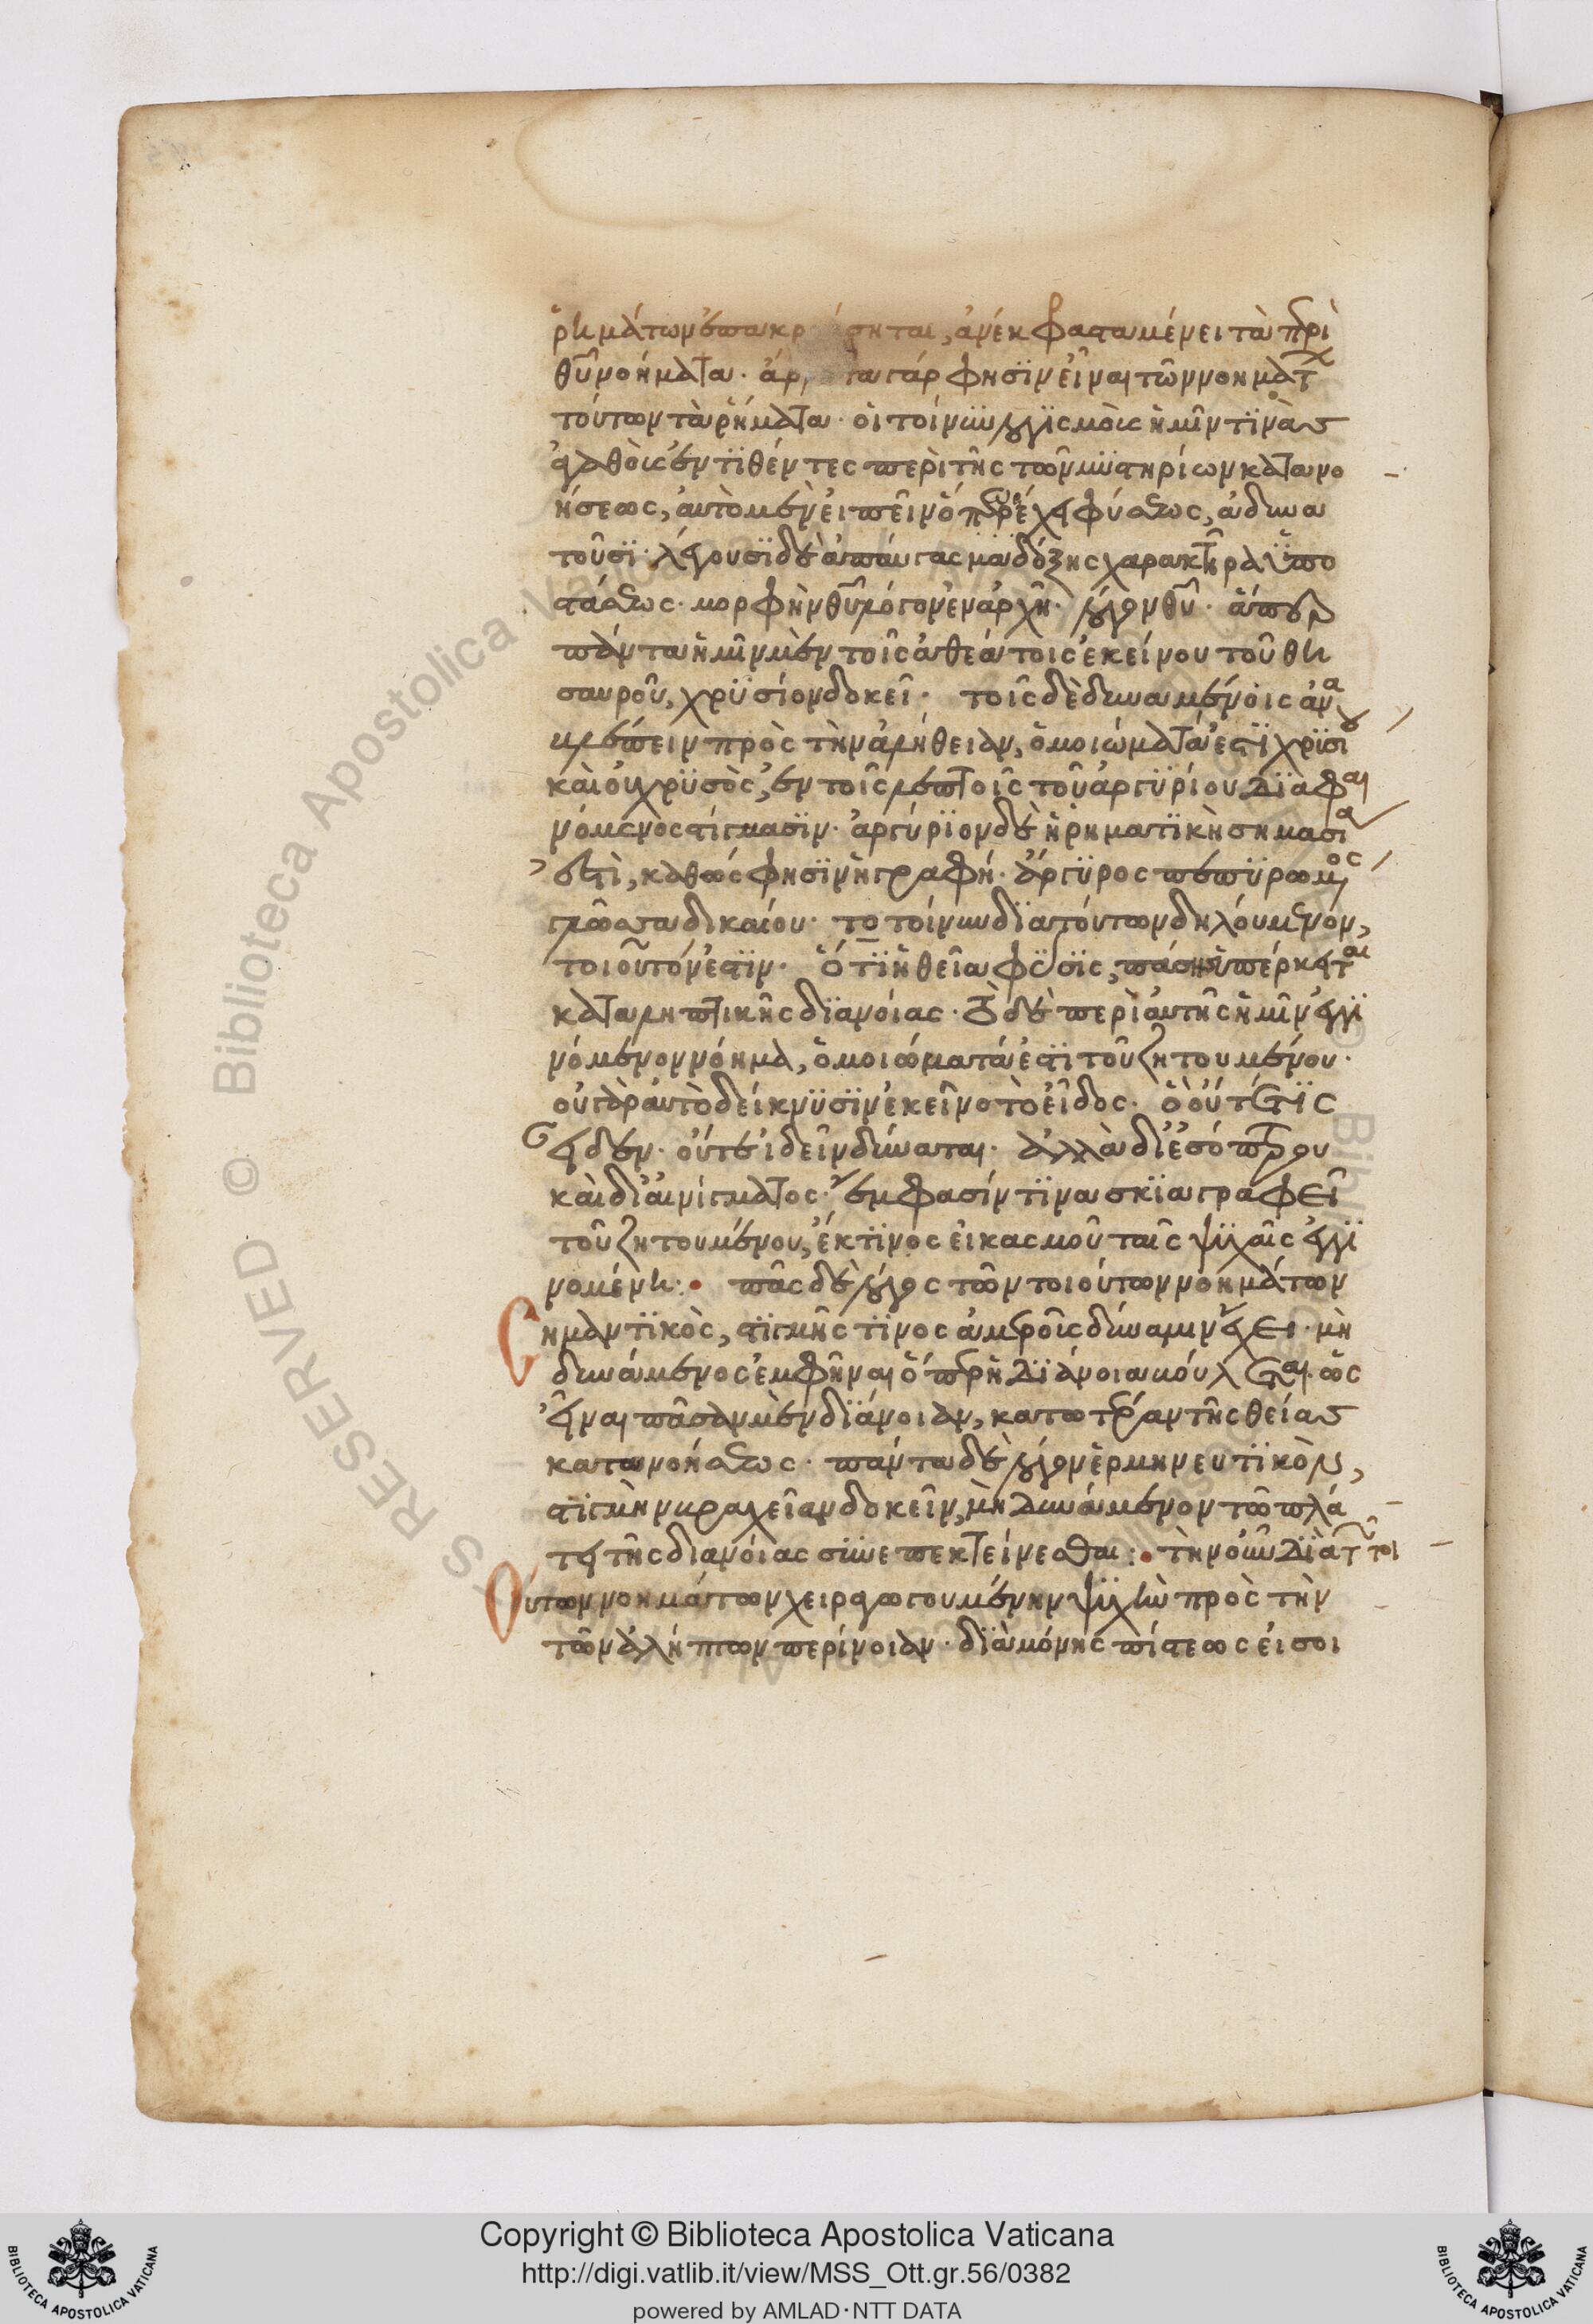 ῥημάτων ἐπακρ ήσηται, ἀνέκφαστα μένει τὰ περὶ
θῦ νοήματα. ἄρ τα γάρ φησϊν εἶναι τῶν νοημάτ
τούτων τὰ ῥήματα. οἱ τοίνυν λογϊσμοὺς ἡμῖν τϊνὰς
ἀγαθοὺς ἐντϊθέντες περὶ τῆς τῶν μϋστηρίων κατανο
ήσεως, αὐτὸ μὲν εἰπεῖν ὅπως ἔχει φύσεως, ἀδυνα
τοῦσϊ. λέγουσϊ δὲ ἀπαύγασμα δόξης χαρακτῆρα ὑπο
στάσεως. μορφὴν θῦ λόγον ἐν ἀρχῆ. λόγον θῦ. ἅπερ
πάντα ἡμῖν μὲν τοῖς ἀθεάτοις ἐκείνου τοῦ θη
σαυροῦ, χρϋσίον δοκεῖ. τοῖς δὲ δυναμένοις ἀνα
βλέπειν πρὸς τὴν ἀλήθειαν, ὁμοιώματά ἐστϊ χρϋσίου
καὶ οὐ χρϋσὸς, ἐν τοῖς λεπτοῖς τοῦ ἀργϋρίου δϊαφαι
νόμενος στίγμασϊν. ἀργύρϊον δὲ ἡ ῥηματϊκὴ σημασία
ἐστὶ, καθώς φησϊν ἡ γραφή. ἄργϋρος πεπϋρωμένος
γλῶσσα δικαίου. τὸ τοίνυν δϊὰ τούτων δηλούμενον,
τοιοῦτόν ἐστϊν. ὅτϊ ἡ θεία φύσϊς, πάσης ὑπέρκειται
καταληπτικῆς δϊανοίας. τὸ δὲ περὶ αὐτῆς ἡμῖν ἐγγϊ
νόμενον νόημα, ὁμοιώματά ἐστϊ τοῦ ζητουμένου.
οὐ γὰρ αὐτὸ δείκνϋσϊν ἐκεῖνο τὸ εἶδος. ὃ οὔτέ τϊς
εἶδεν. οὔτε ἰδεῖν δύναται. ἀλλὰ δι' ἐσόπτρου
καὶ δι' αἰνίγματος. ἔμφασίν τϊνα σκϊαγραφεῖ
τοῦ ζητουμένου, ἔκ τϊνος εἰκασμοῦ ταῖς ψϋχαῖς ἐγγϊ
νομένη:· πᾶς δὲ λόγος τῶν τοιούτων νοημάτων
Σημαντϊκὸς, στϊγμῆς τϊνος ἀμεροῦς δύναμιν ἔχει. μὴ
δυνάμενος ἐμφῆναι ὅπερ ἡ δϊάνοια βούλεται. ὡς
εἶναι πᾶσαν μὲν δϊάνοιαν, κατωτέραν τῆς θείας
κατανοήσεως. πάντα δὲ λόγον ἑρμηνευτϊκὸν,
στϊγμὴν βραχεῖαν δοκεῖν, μὴ δυνάμενον τῶ πλά
τει τῆς διανοίας συνεπεκτείνεσθαι:· τὴν οὖν δϊὰ τῶν τοι
Ούτων νοημάτων χειραγωγουμένην ψϋχὴν πρὸς τὴν
τῶν ἀλήπτων περίνοιαν. δϊὰ μόνης πίστεως εἰσοι
Copyright © Biblioteca Apostolica Vaticana
http://digi.vatlib.it/view/MSS_Ott.gr.56/0382
powered by AMLAD·NTT DATA